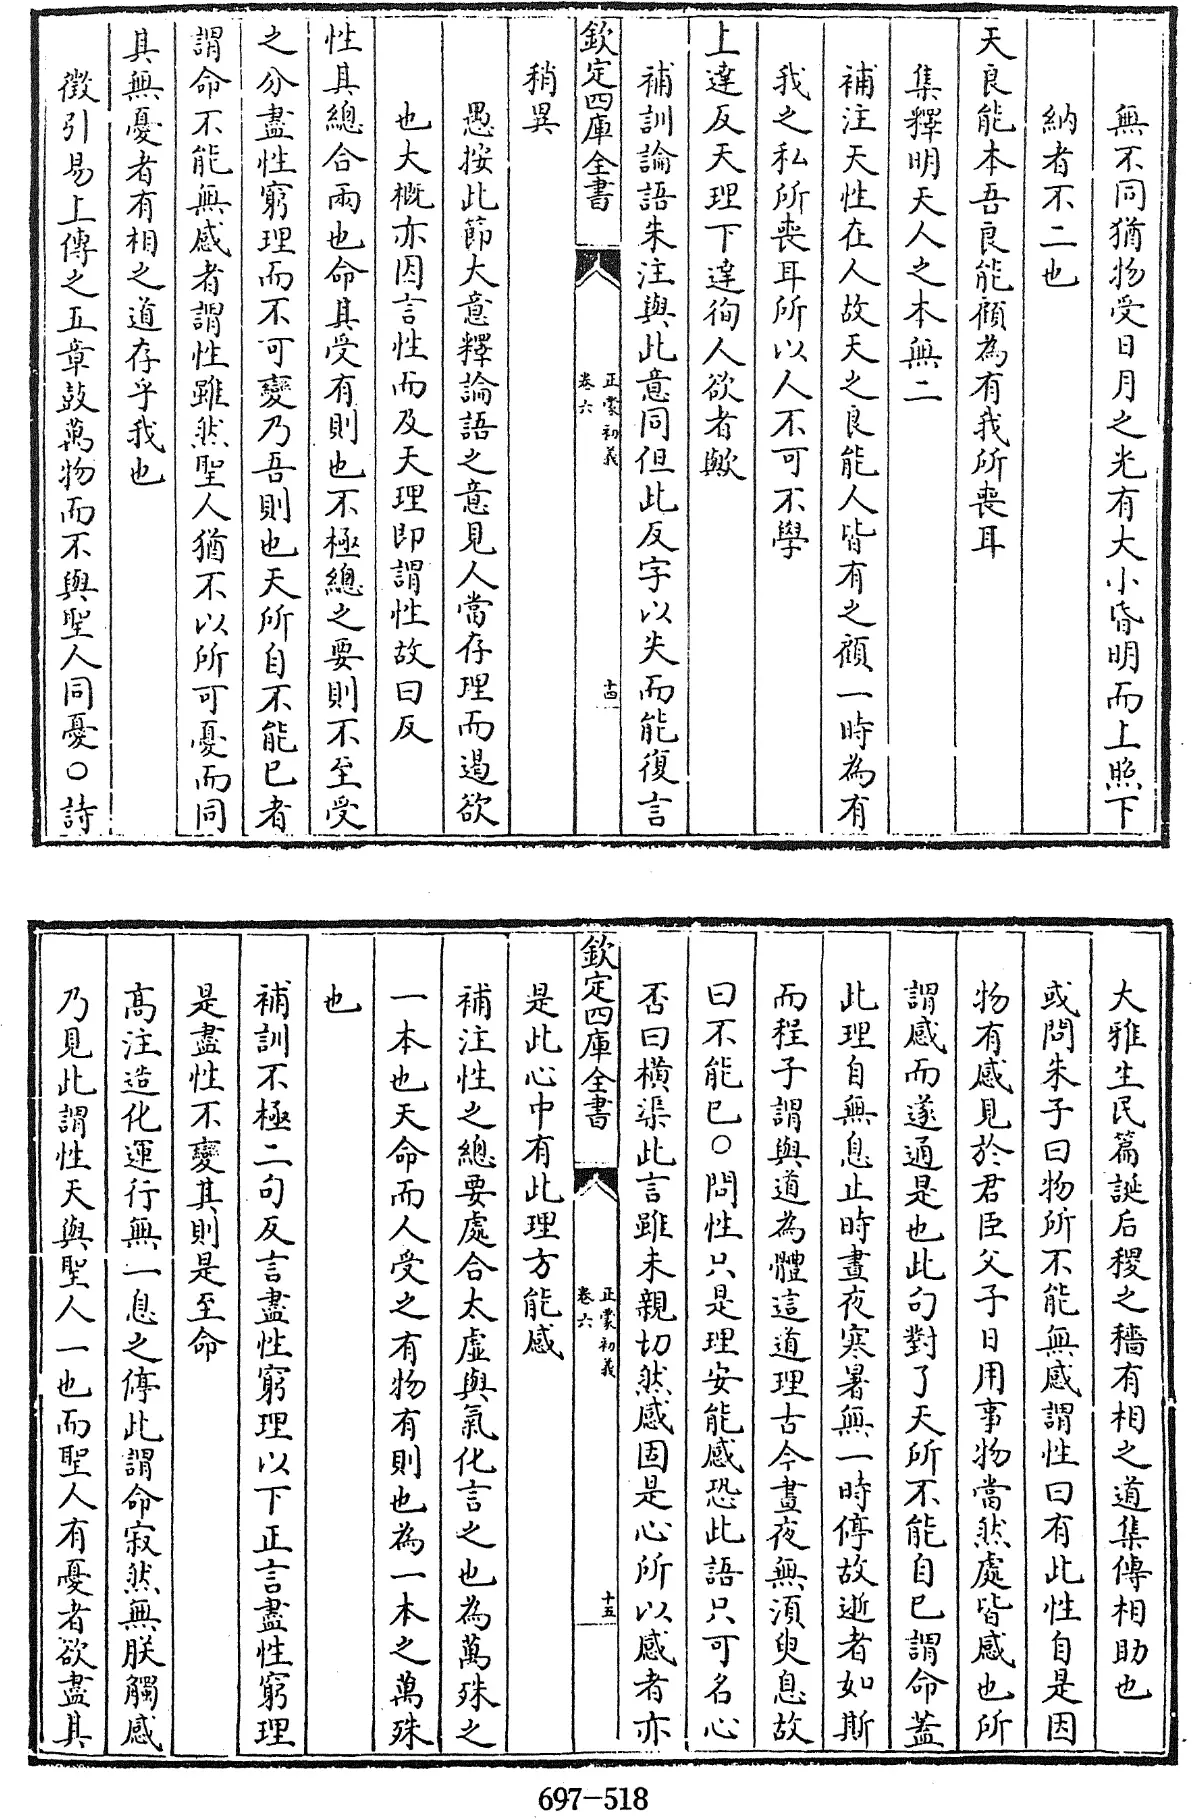 無不同猶物受日月之光有大小昏明而上照下
納者不二也
天良能本吾良能顧為有我所喪耳
集釋明天人之本無二
補注天性在人故天之良能人皆有之顧一時為有
我之私所喪耳所以人不可不學
上達反天理下達徇人欲者歟
補訓論語朱注與此意同但此反字以失而能復言
欽定四庫全書
正蒙初義
卷六
十四
稍異
愚按此節大意釋論語之意見人當存理而遏欲
也大概亦因言性而及天理即謂性故曰反
性其總合兩也命其受有則也不極總之要則不至受
之分盡性窮理而不可變乃吾則也天所自不能已者
謂命不能無感者謂性雖然聖人猶不以所可憂而同
其無憂者有相之道存乎我也
徵引易上傳之五章鼓萬物而不與聖人同憂○詩
大雅生民篇誕后稷之穡有相之道集傳相助也
或問朱子曰物所不能無感謂性曰有此性自是因
物有感見於君臣父子日用事物當然處皆感也所
謂感而遂通是也此句對了天所不能自已謂命蓋
此理自無息止時晝夜寒暑無一時停故逝者如斯
而程子謂與道為體這道理古今晝夜無須臾息故
曰不能已○問性只是理安能感恐此語只可名心
否曰橫渠此言雖未親切然感固是心所以感者亦
欽定四庫全書
正蒙初義
卷六
十五
是此心中有此理方能感
補注性之總要處合太虛與氣化言之也為萬殊之
一本也天命而人受之有物有則也為一本之萬殊
也
補訓不極二句反言盡性窮理以下正言盡性窮理
是盡性不變其則是至命
高注造化運行無一息之停此謂命寂然無朕觸感
乃見此謂性天與聖人一也而聖人有憂者欲盡其
697-518